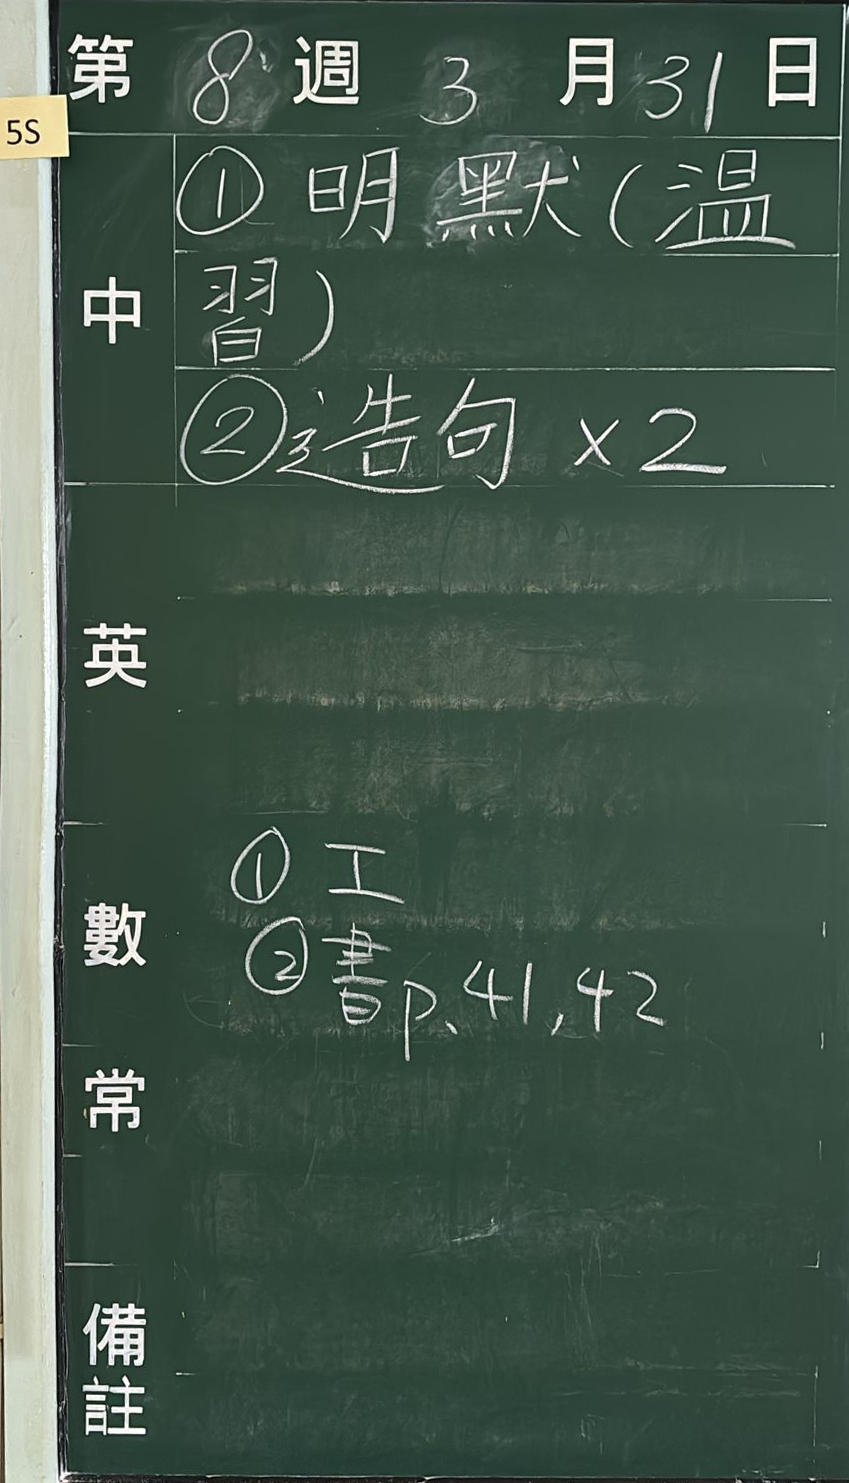 第 8 週 3 月 31 日
5S
中
① 明 默 (溫
習)
② 造句 x2
英
數
① 工
② 書p.41,42
常
備
註